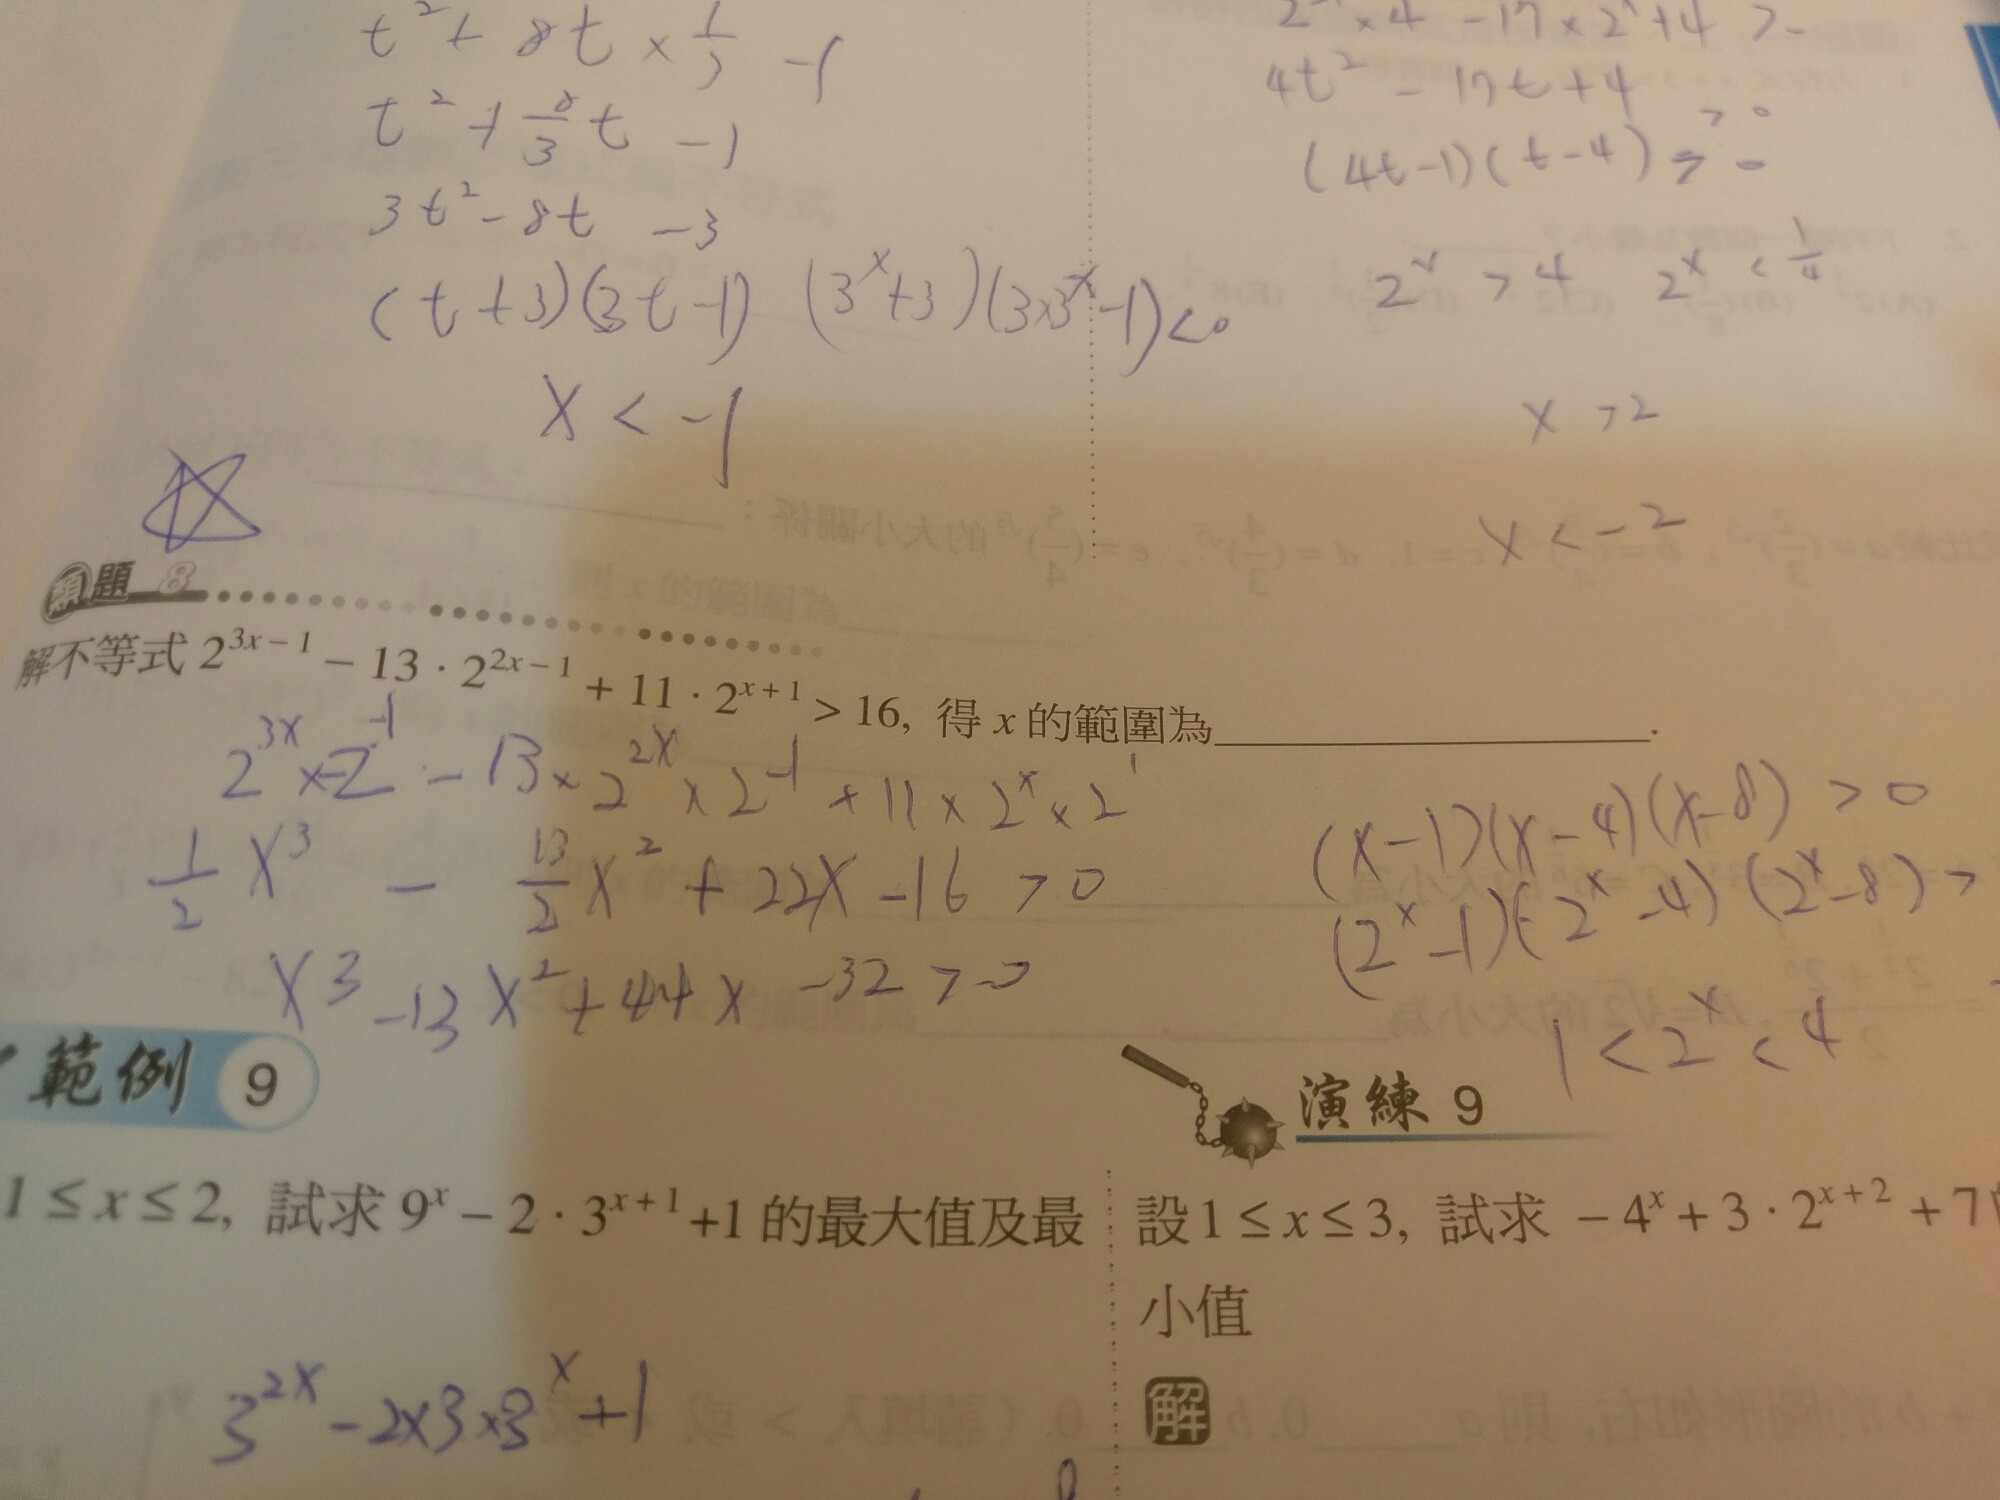 t² + 8t × 1/3 - 1
t² + 8/3 t - 1
3t² - 8t - 3
(t+3)(3t-1) (3^x+3)(3×3^x-1)<0
x < -1
4t² - 17t + 4 > 0
(4t-1)(t-4) > 0
2^x > 4 2^x < 1/4
x > 2
x < -2
類題 8
解不等式 2^{3x-1} - 13 · 2^{2x-1} + 11 · 2^{x+1} > 16, 得 x 的範圍為____.
2^{3x} × 2^{-1} - 13 × 2^{2x} × 2^{-1} + 11 × 2^x × 2^1
1/2 x³ - 13/2 x² + 22x - 16 > 0
x³ - 13x² + 44x - 32 > 0
(x-1)(x-4)(x-8) > 0
(2^x-1)(2^x-4)(2^x-8) >
1 < 2^x < 4
範例 9
1 ≤ x ≤ 2, 試求 9^x - 2 · 3^{x+1} +1 的最大值及最
3^{2x} - 2×3×3^x + 1
演練 9
設 1 ≤ x ≤ 3, 試求 -4^x + 3 · 2^{x+2} + 7
小值
解